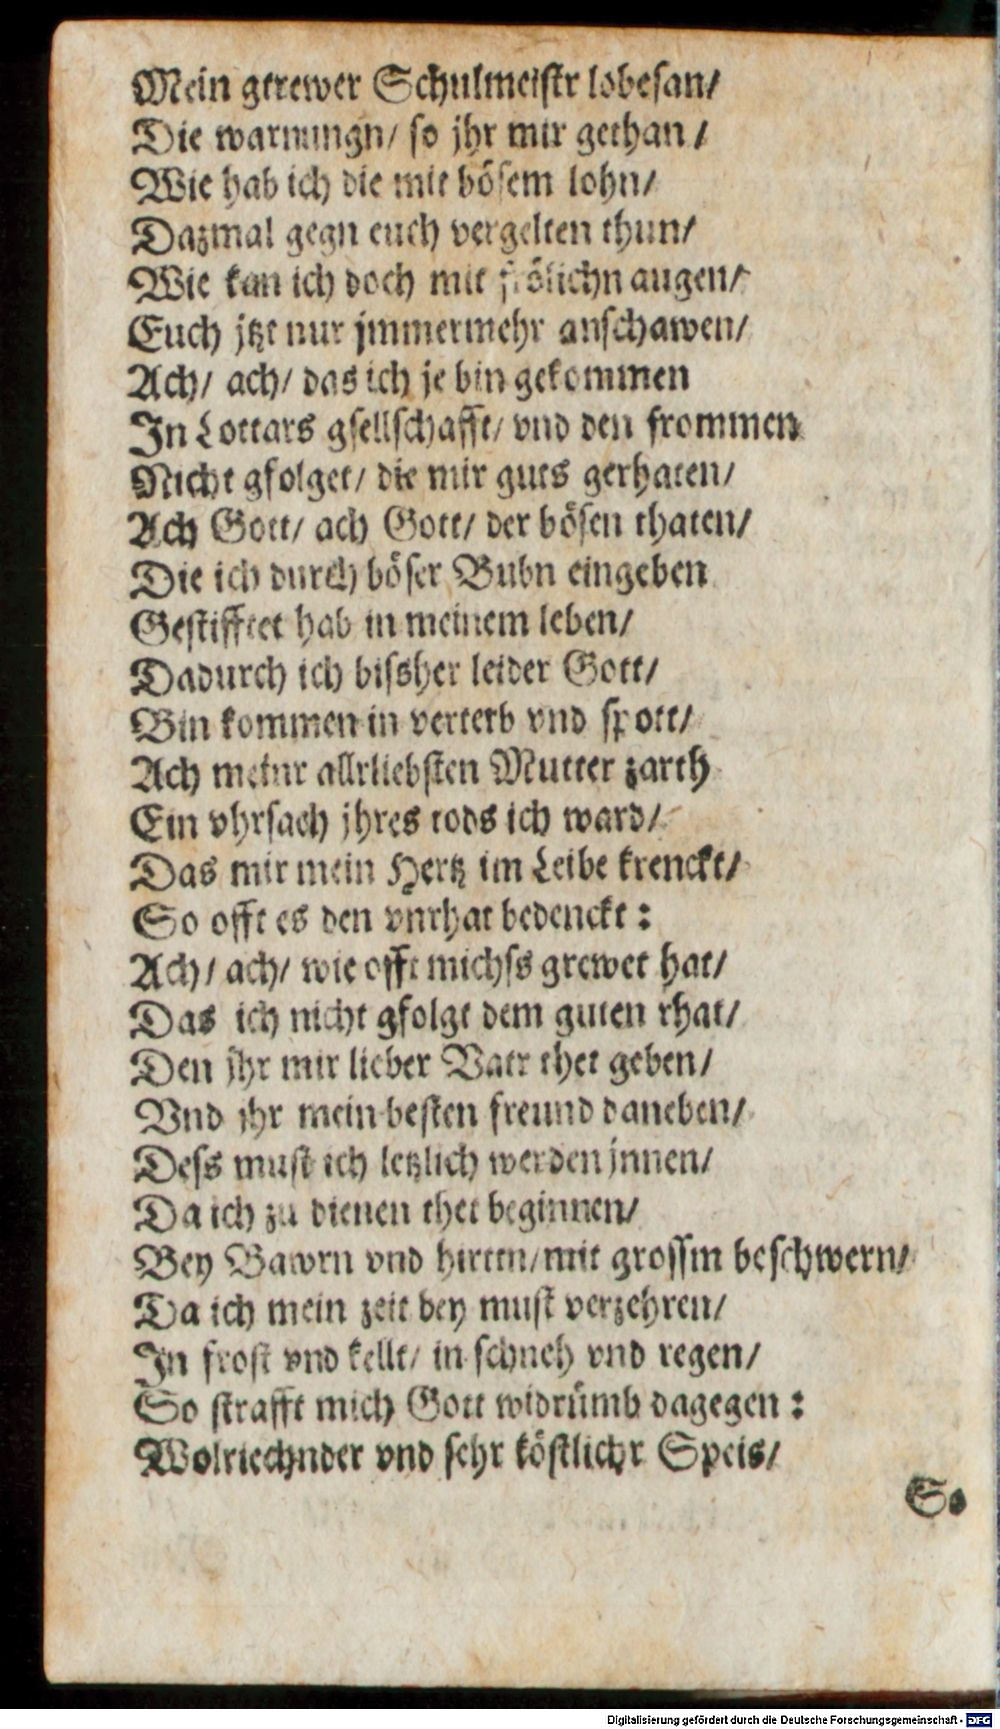 Mein getrewer Schulmeistr lobesan/
Die warnungn/ so jhr mir gethan/
Wie hab ich die mit bösem lohn/
Dazmal gegn euch vergelten thun/
Wie kan ich doch mit frölichn augen/
Euch jtzt nur jmmermehr anschawen/
Ach/ ach/ das ich je bin gekommen
In Lottars gsellschafft/ vnd den frommen
Nicht gfolget/ die mir guts gerhaten/
Ach Gott/ ach Gott/ der bösen thaten/
Die ich durch böser Bubn eingeben
Gestifftet hab in meinem leben/
Dadurch ich bissher leider Gott/
Bin kommen in verterb vnd spott/
Ach meinr allrliebsten Mutter zarth
Ein vhrsach jhres tods ich ward/
Das mir mein Hertz im Leibe krenckt/
So offt es den vnrhat bedenckt:
Ach/ ach/ wie offt michss grewet hat/
Das ich nicht gfolgt dem guten rhat/
Den jhr mir lieber Vatr thet geben/
Vnd jhr mein besten freund daneben/
Dess must ich letzlich werden jnnen/
Da ich zu dienen thet beginnen/
Bey Bawrn vnd hirttn/ mit grossm beschwern/
Da ich mein zeit bey must verzehren/
In frost vnd kellt/ in schneh vnd regen/
So strafft mich Gott widrümb dagegen:
Wolriechnder vnd sehr köstlichr Speis/
So
Digitalisierung gefördert durch die Deutsche Forschungsgemeinschaft - DFG